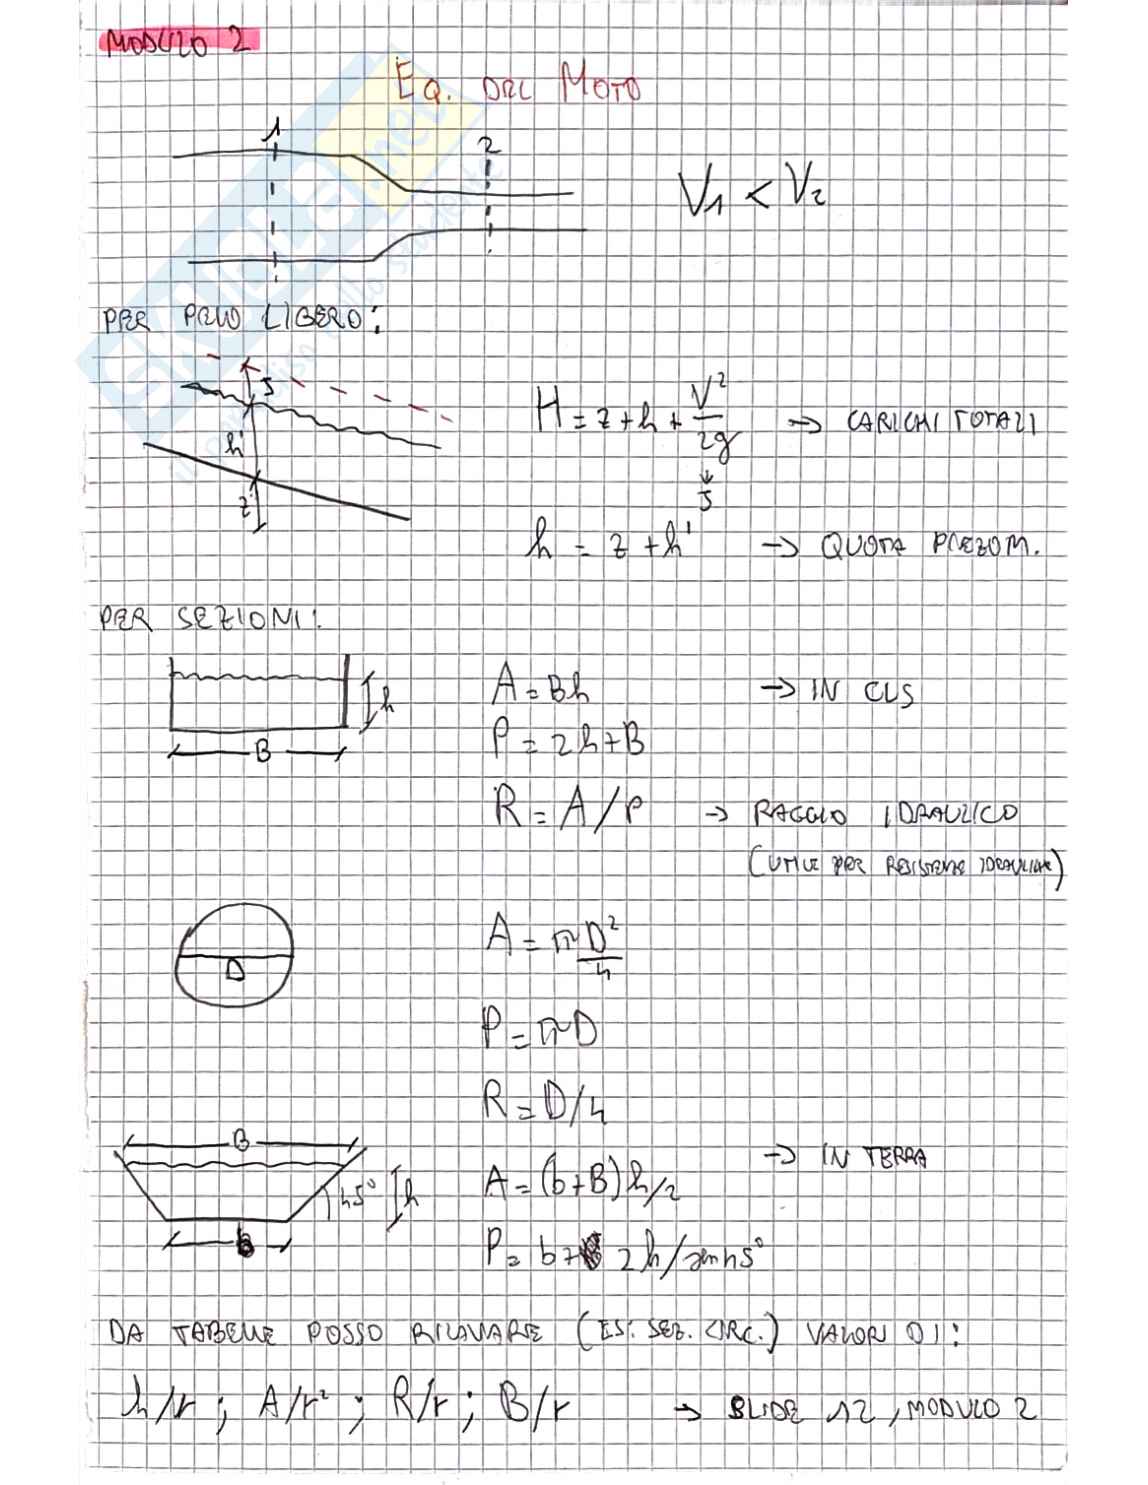 MODULO 2
EQ. DEL MOTO
1
2
V1 < V2
PER PELO LIBERO:
J
h'
z
H = z + h + V²/2g → CARICHI TOTALI
↓
J
h = z + h' → QUOTA PIEZOM.
PER SEZIONI:
h
B
A = Bh → IN CLS
P = 2h + B
R = A/P → RAGGIO IDRAULICO
(UTILE PER RESISTENZE IDRAULICHE)
D
A = π D²/4
P = πD
R = D/4
B
45°
h
b
A = (b+B)h/2 → IN TERRA
P = b + 2h/sen45°
DA TABELLE POSSO RICAVARE (ES: SEZ. CIRC.) VALORI DI:
h/r ; A/r² ; R/r ; B/r → SLIDE 12, MODULO 2
SKUOLA.net
il paradiso dello studente